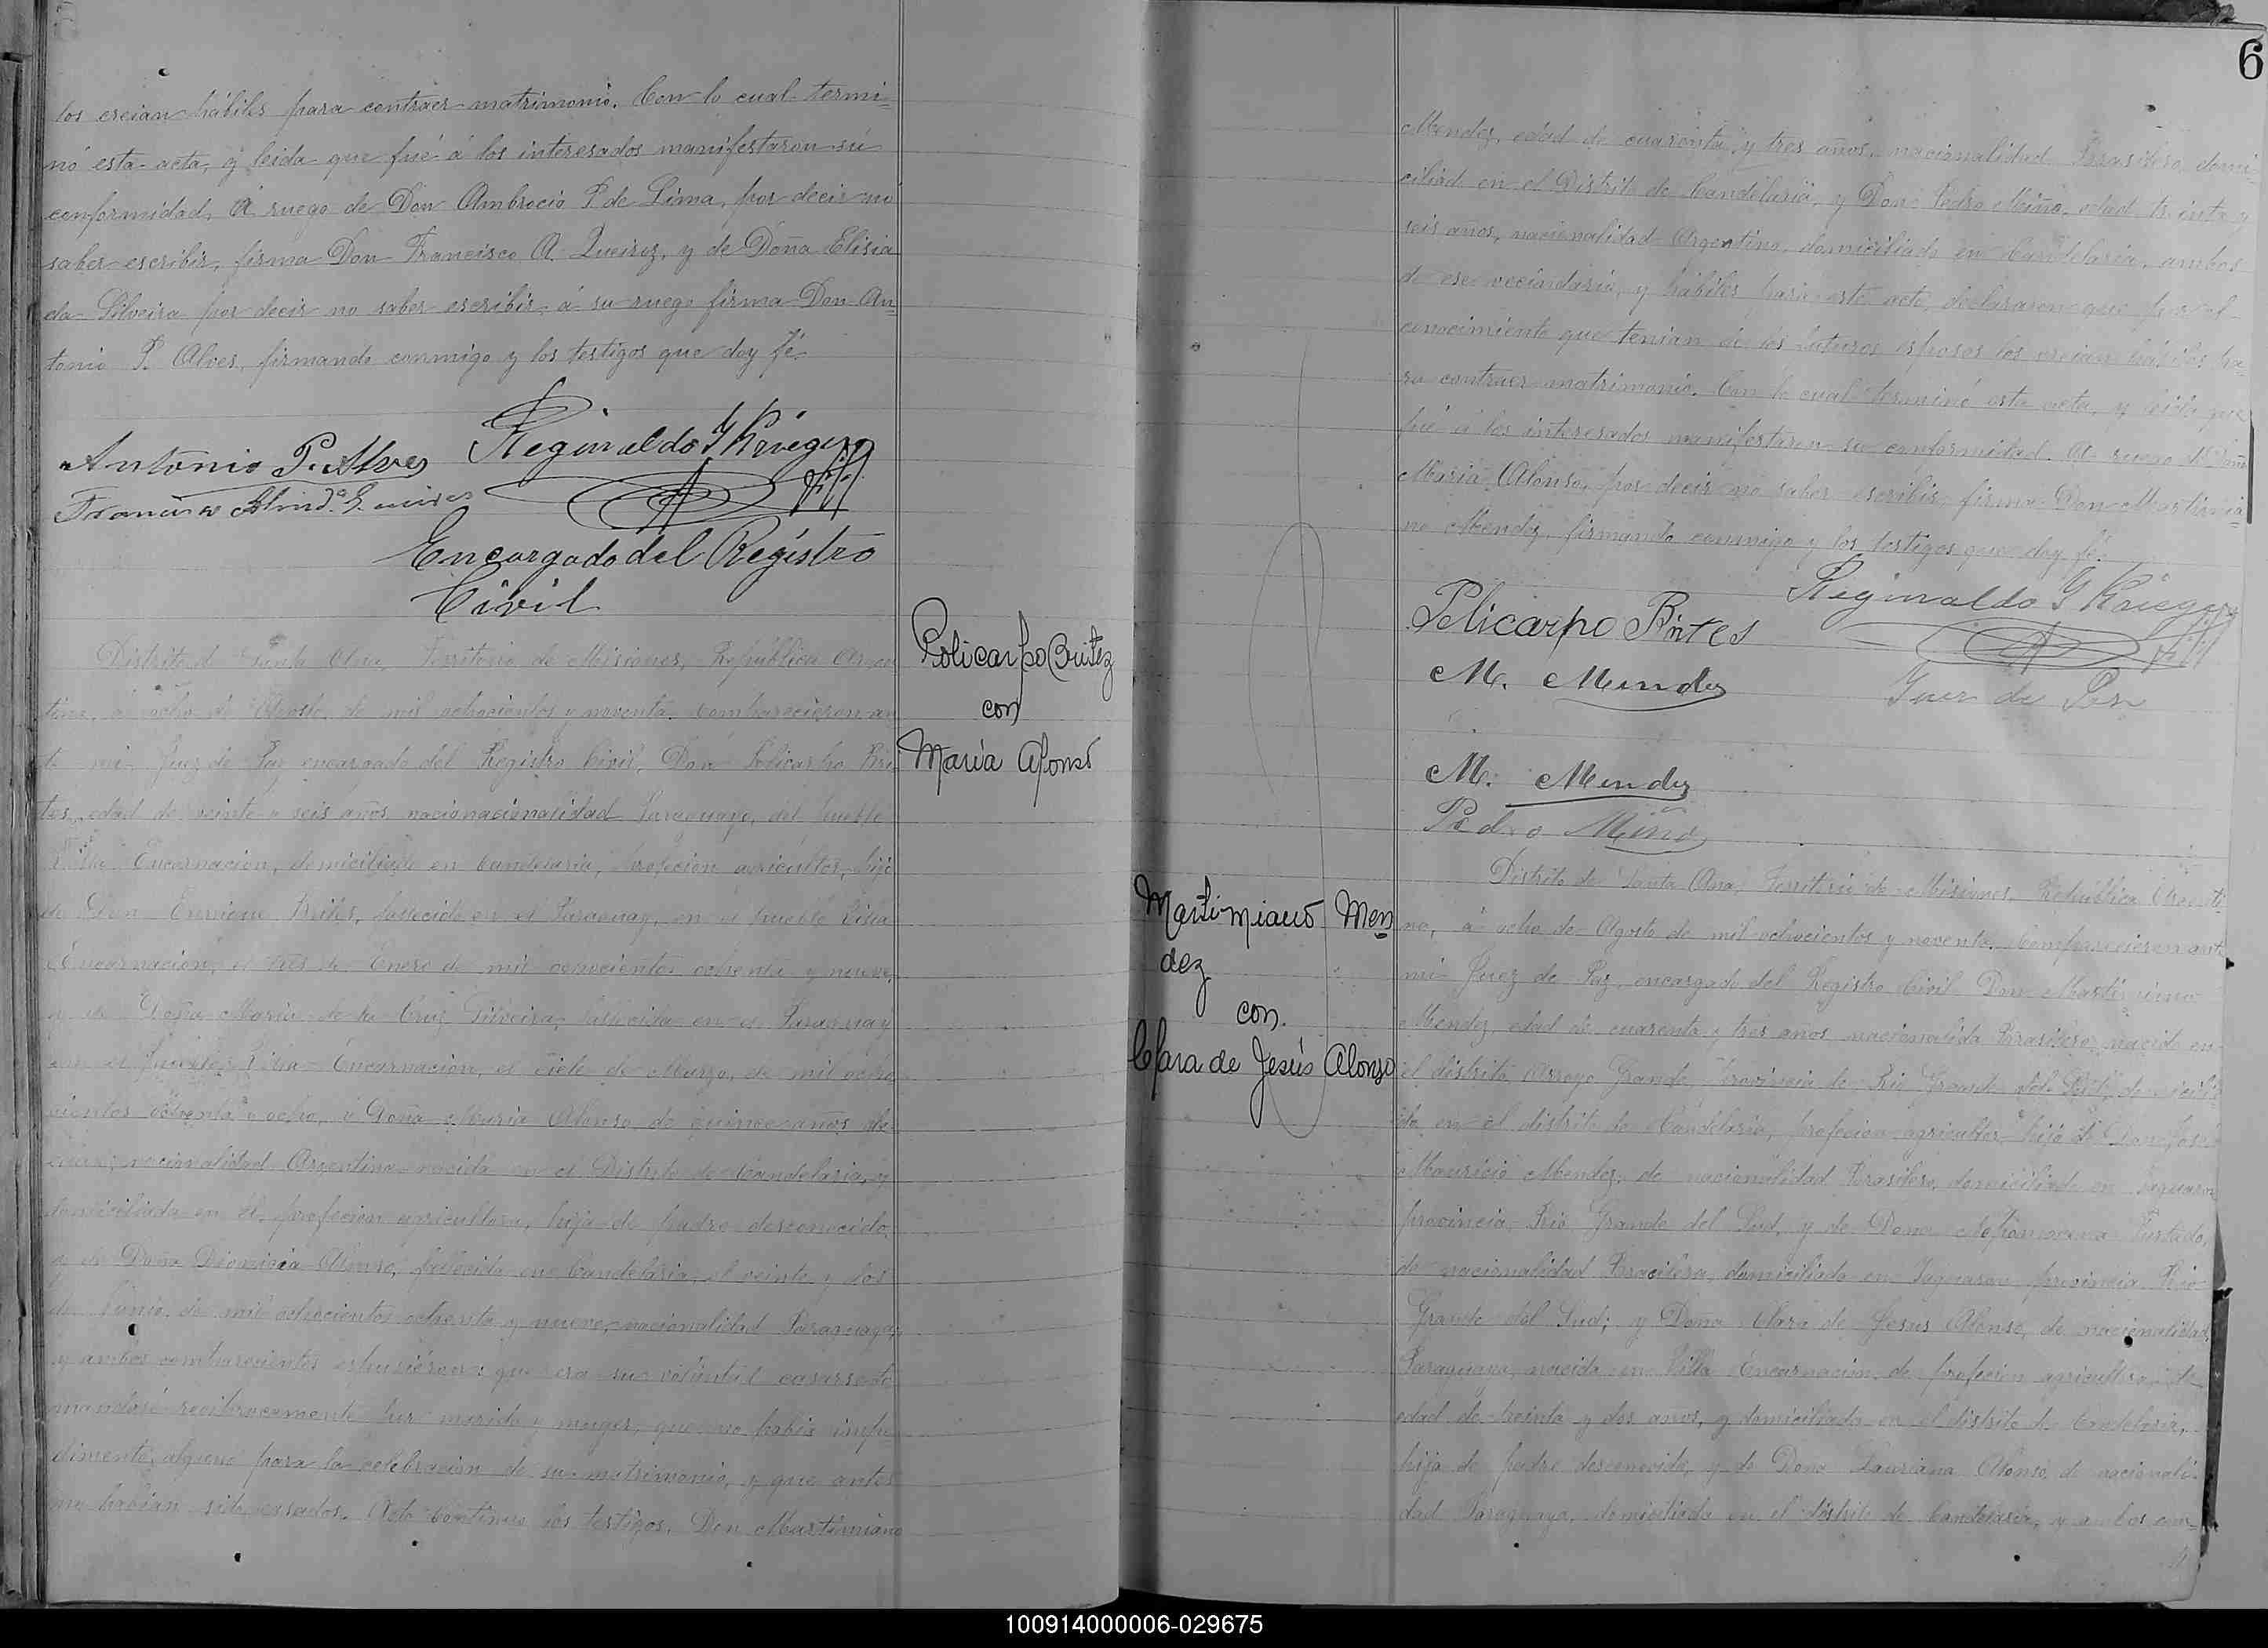 los creian hábiles para contraer matrimonio. Con lo cual termi=
nó esta acta, y leida que fué á los interesados manifestaron su
conformidad, Á ruego de Don Ambrocio P. de Lima, por decir no
saber escribir, firma Don Francisco A. Queiroz, y de Doña Elisia
da Silveira por decir no saber escribir, á su ruego firma Don An=
tonio P. Alves, firmando conmigo y los testigos que doy fé.
Antonio P. Alves
Reginaldo Y Krieger
Encargado del Registro
Civil
Distrito de Santa Ana, Territorio de Misiones, República Argen
tina, á ocho de Agosto de mil ochocientos y noventa. Comparecieron an
te mi Juez de Paz encargado del Registro Civil, Don Policarpo Bri
tes, edad de veinte y seis años, nacionacionalidad Paraguayo, del Pueblo
Villa Encarnacion, domiciliado en Candelaria, profecion agricultor, hijo
de Don Brites, fallecido en el Paraguay, en el pueblo Villa
Encarnacion, el tres de Enero de mil ochocientos ochenta y nueve,
y de Doña Maria de la Cruz fallecida en el Paraguay
en el pueblo Villa Encarnacion, el siete de Marzo, de mil ocho
cientos ochenta y ocho, y Doña Maria Alonso, de quince años de
edad, nacionalidad Argentina nacida en el Distrito de Candelaria, y
domiciliada en él, profecion agricultora, hija de padre desconocido
y de Doña Dionicia Alonso, fallecida en Candelaria, el veinte y dos
de Junio de mil ochocientos ochenta y nueve, nacionalidad Paraguaya,
y ambos comparecientes espusieron: que era su voluntad casarse to
mandose reciprocamente por marido y muger, que no habia impe
dimento alguno para la celebracion de su matrimonio, y que antes
no habian sido casados. Acto continuo los testigos, Don Martimiano
Policarpo Benitez
con
Maria Afonso
6
Mendez, edad de cuarenta y tres años, nacionalidad Brasilero, domi
ciliado en el Distrito de Candelaria, y Don Pedro Miño, edad treinta y
seis años, nacionalidad Argentino, domiciliado en Candelaria, ambos
de ese vecindario, y hábiles para este acto, declararon que por el
conocimiento que tenian de los futuros esposos los creian hábiles pa=
ra contraer matrimonio. Con lo cual terminó esta acta, y leida que
fué á los interesados manifestaron su conformidad. A ruego de Doña
Maria Alonso, por decir no saber escribir firma Don Martimia=
no Mendez, firmando conmigo y los testigos que doy fé.
Pelicarpo Brites
Reginaldo Y Krieger
M. Mendez
Juez de Paz
M. Mendez
Pedro Miño
Martimiano Men
dez
con.
Clara de Jesús Alonzo
Distrito de Santa Ana, Territorio de Misiones, República Argenti=
na, á ocho de Agosto de mil ochocientos y noventa. Comparecieron ante
mi Juez de Paz, encargado del Registro Civil Don Martimiano
Mendez, edad de cuarenta y tres años nacionalida Brasilero, nacido en
el distrito Arroyo Grande, Provincia de Rio Grande del Sud, domicilia
do en el distrito de Candelaria, profecion agricultor hijo de Don José
Mauricio Mendez, de nacionalidad Brasilero, domiciliado en Jaguaron
provincia Rio Grande del Sud, y de Dona Furtado,
de nacionalidad Bracilera, domiciliada en Jaguaron provincia Rio
Grande del Sud; y Doña Clara de Jesus Alonso, de nacionalidad
Paraguaya, nacida en Villa Encarnacion, de profecion agricultora, de
edad de treinta y dos anos, y domiciliada en el distrito de Candelaria,
hija de padre desconocido, y de Dona Lauriana Alonso, de nacionali-
dad Paraguaya, domiciliada en el distrito de Candelaria, y ambos com=
100914000006-029675